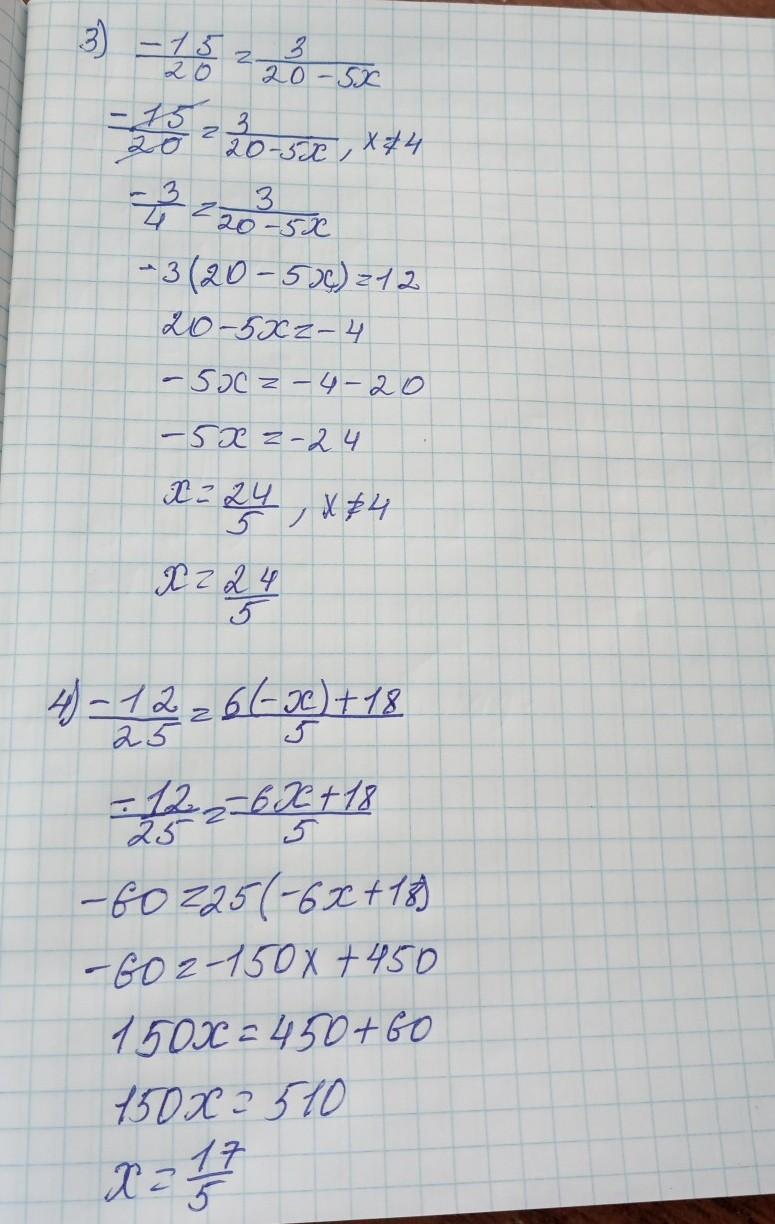 3) -15/20 = 3/(20-5x)
-15/20 = 3/(20-5x), x≠4
-3/4 = 3/(20-5x)
-3(20-5x)=12
20-5x=-4
-5x=-4-20
-5x=-24
x=24/5, x≠4
x=24/5
4) -12/25 = (6(-x)+18)/5
-12/25 = (-6x+18)/5
-60=25(-6x+18)
-60=-150x+450
150x=450+60
150x=510
x=17/5